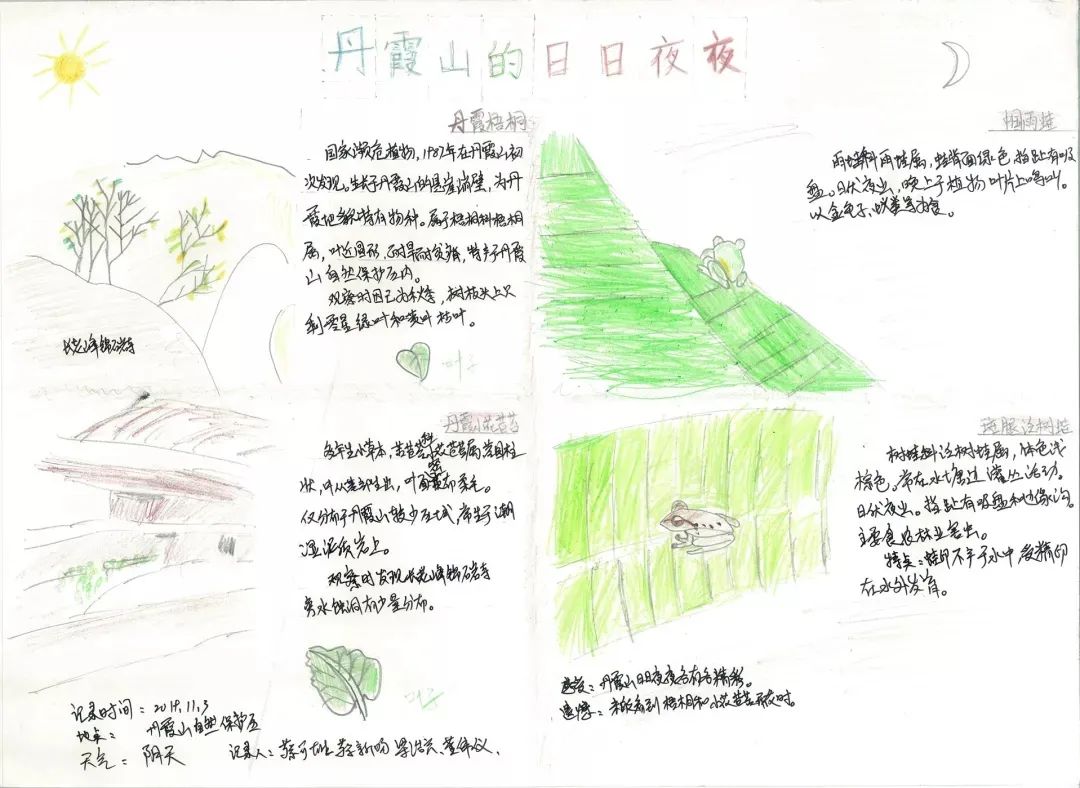 丹霞山的日日夜夜
丹霞梧桐
国家濒危植物,1987年在丹霞山初
次发现。生长于丹霞山的悬崖崩壁,为丹
霞地貌特有物种。属于梧桐科梧桐
属,叶近圆形,耐旱耐贫瘠,特产于丹霞
山自然保护区内。
观察时因已为秋季,树枝头上只
剩零星绿叶和黄叶枯叶。
叶子
长老峰锦石岩寺
丹霞小花苣苔
多年生小草本,苦苣苔科小花苣苔属,茎圆柱
状,叶从茎部生出,叶面密布柔毛。
仅分布于丹霞山散少区域,常生于潮
湿泥质岩上。
观察时发现长老峰锦石岩寺
旁水蚀洞有少量分布。
叶子
雨蛙科雨蛙属,蛙背面绿色,指趾有吸
盘。日伏夜出,晚上于植物叶片上鸣叫。
以金龟子、蚁类等为食。
斑腿泛树蛙
树蛙科泛树蛙属,体色浅
棕色。常在水塘边灌丛活动。
日伏夜出。指趾有吸盘和边缘沟。
主要食农林业害虫。
特点:蛙卵不产于水中,受精卵
在水外发育。
感受:丹霞山日日夜夜各有各精彩。
遗憾:未能看到梧桐和小花苣苔开花时。
记录时间:2019.11.3
地点:丹霞山自然保护区
天气:阴天
记录人: